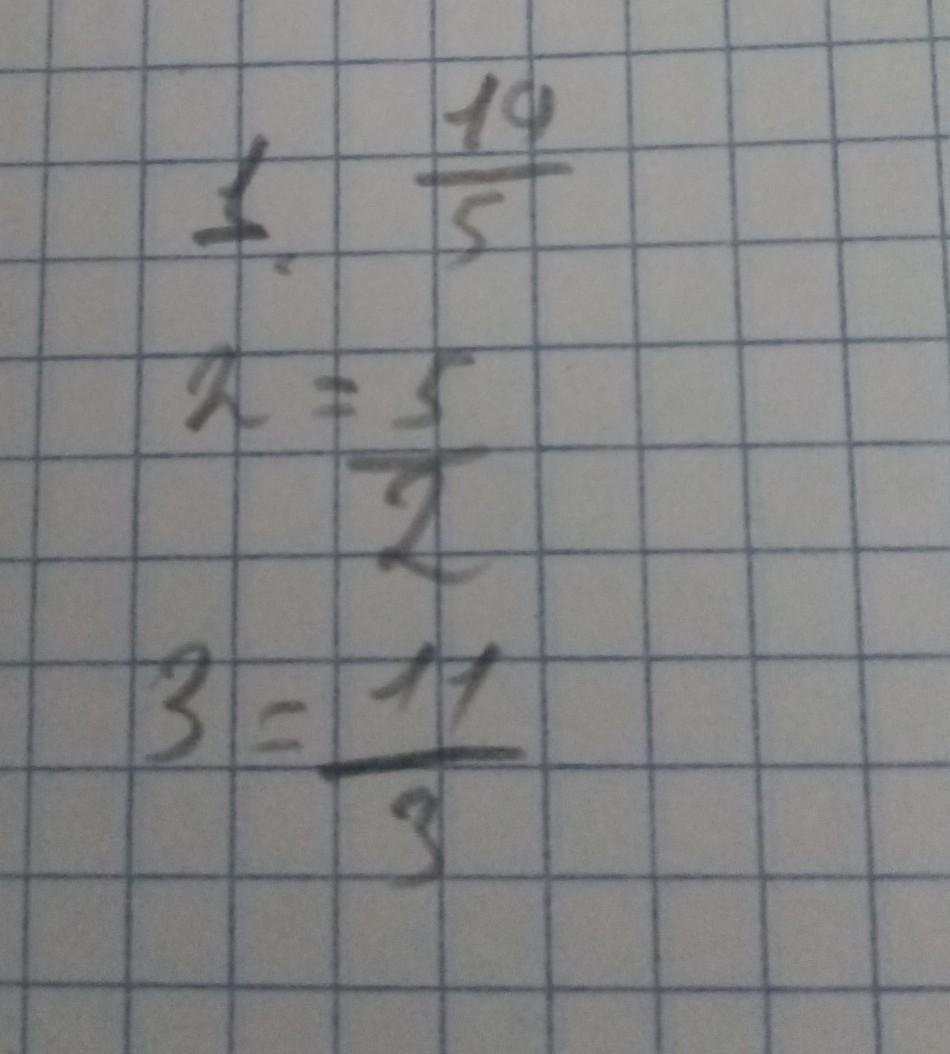 1. 19/5
2 = 5/2
3 = 11/3